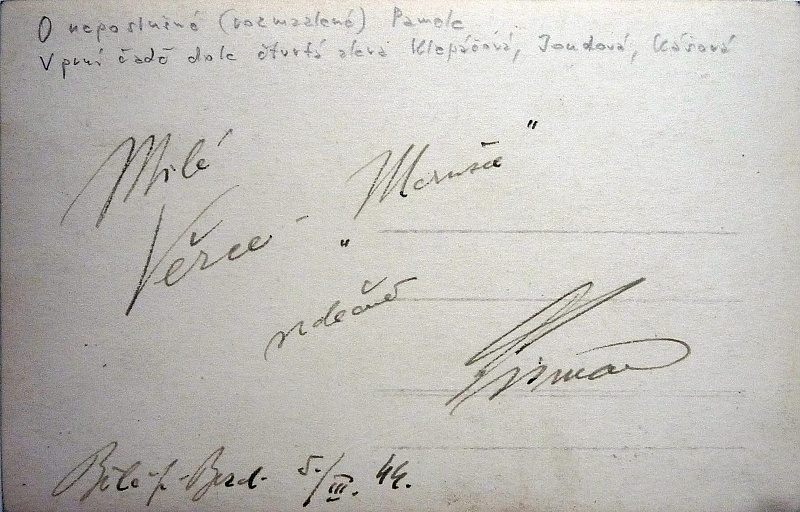 O neposlušné (rozmazlené) Pamele
V první řadě dole čtvrtá zleva Klepáčová, Joudová, Kášová
Milé
Věrce - „Maruša“
srdečně
Bělá p. Bezd. 5./III. 44.